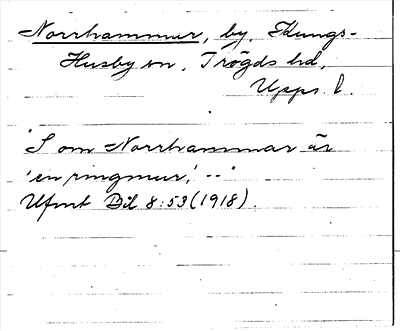 Norrhammar, by, Kungs-
Husby sn, Trögds hd,
Upps. l.
"I om Norrhammar är
'en ringmur,' --"
Ufmt Bil 8:53 (1918).